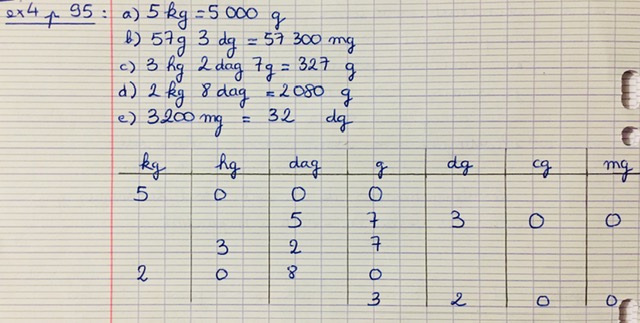 ex4 p 95 : a) 5 kg = 5 000 g
b) 57g 3 dg = 57 300 mg
c) 3 hg 2 dag 7g = 327 g
d) 2 kg 8 dag = 2080 g
e) 3200 mg = 32 dg
kg hg dag g dg cg mg
5 0 0 0
5 7 3 0 0
3 2 7
2 0 8 0
3 2 0 0